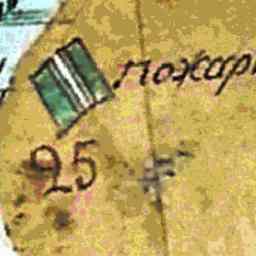 пожар
25